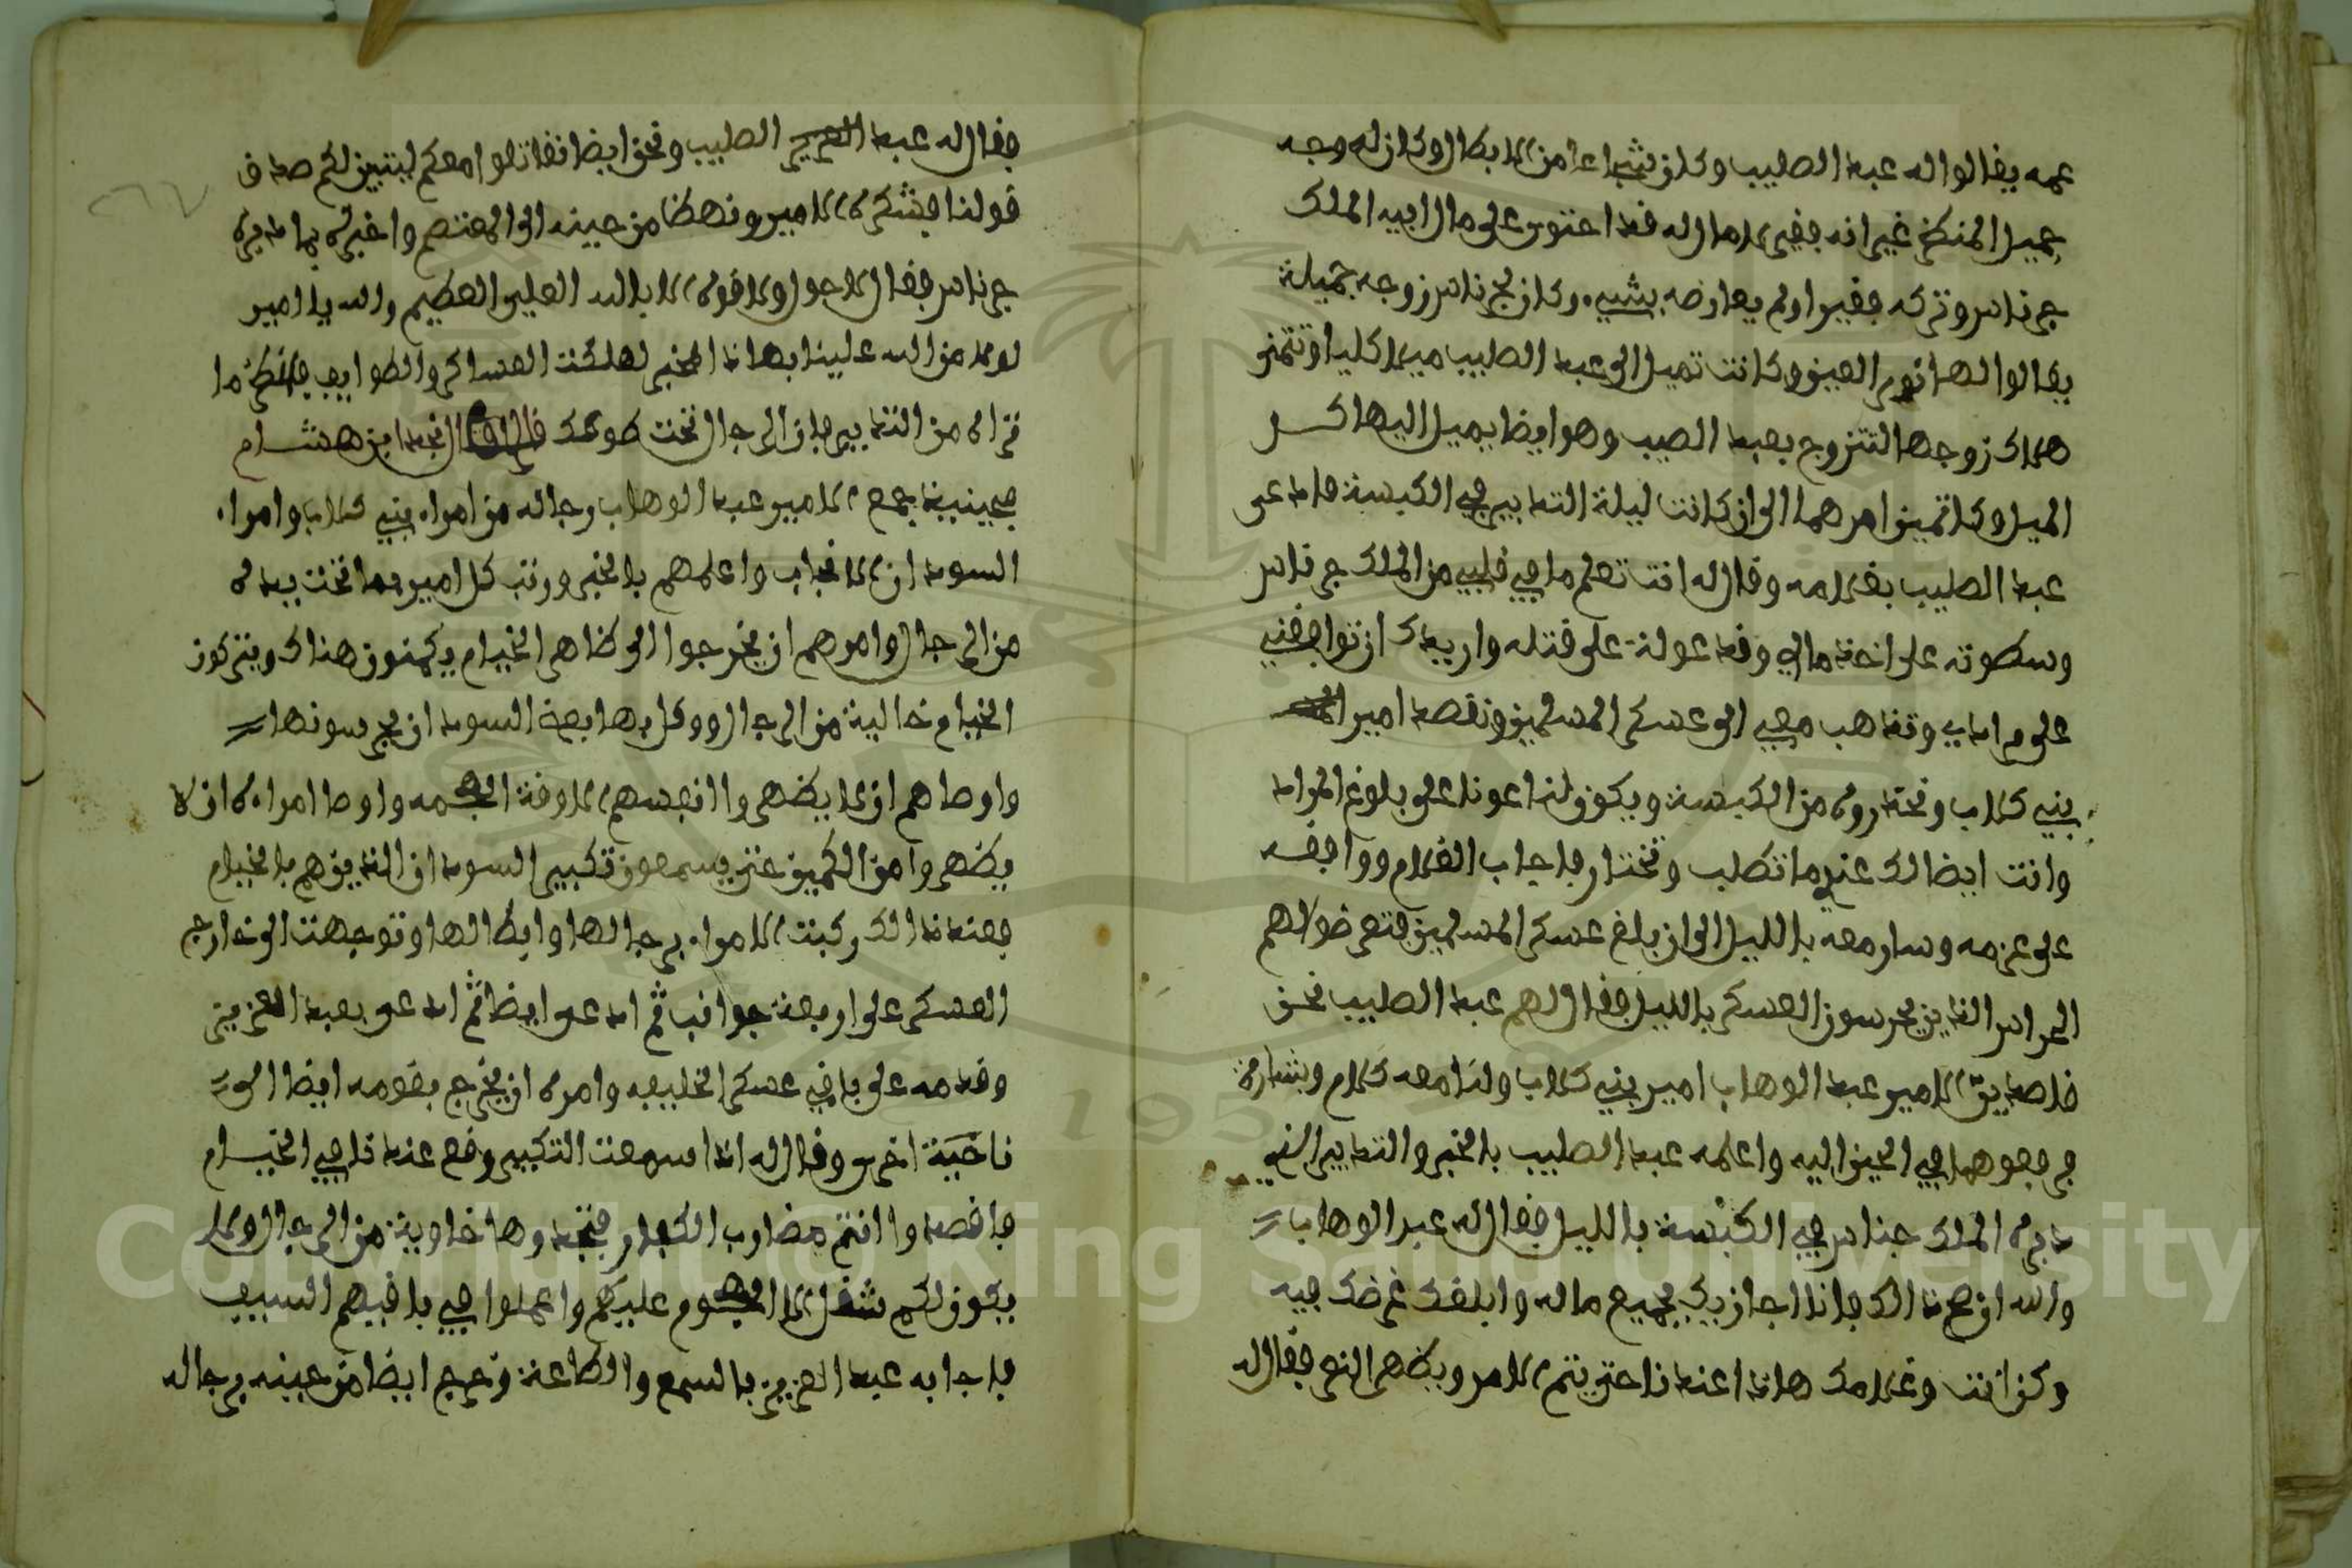 عمه يقالوا له عبد الصليب وكان شجاعا من الابطال وكان له وجه
جميل المنظر غير انه فقير لا مال له قد احتوى على مال ابيه الملك
جرناس وتركه فقيرا ولم يعارضه بشيء وكان لجرناس زوجه جميلة
يقالوا لها نور العين وكانت تميل الى عبد الصليب ميلا كليا وتتمنى
هلاك زوجها لتتزوج بعبد الصيب وهو ايضا يميل اليها اكثر
الميل وكاتمين امرهما الى ان كانت ليلة التدبير في الكبسة فادعى
عبد الصليب بغلامه وقال له انت تعلم ما في قلبي من الملك جرناس
وسطوته على اخذ مالي وقد عولة على قتله واريدك ان توافقني
على مرادي وتذهب معي الى عسكر المسلمين ونقصد امير
بني كلاب ونحذروه من الكبسة ويكون لنا عونا على بلوغ المراد
وانت ايضا لك عندي ما تطلب وتختار فاجاب الغلام ووافقه
على عزمه وسار معه بالليل الى ان بلغ عسكر المسلمين فتعرضوا لهم
الحراس الذين يحرسون العسكر بالليل فقال لهم عبد الصليب نحن
قاصدين الامير عبد الوهاب امير بني كلاب ولنا معه كلام وبشارة
فرفعوهما في الحين اليه واعلمه عبد الصليب بالخبر والتدبير الذي
دبره الملك جرناس في الكبسة بالليل فقال له عبد الوهاب
والله ان صح ذالك فانا اجازيك بجميع ماله وابلغك غرضك فيه
وكن انت وغلامك هاذا عندنا حتى يتم الامر ويظهر النصر فقال له
فقال له عبد الصليب ونحن ايضا نقاتلوا معكم ليتبين لكم صدق
قولنا فشكره الامير ونهض من حينه الى المعتصم واخبره بما دبره
جرناس فقال لا حول ولا قوة الا بالله العلي العظيم والله يا امير
لولا من الله علينا بهاذا الخبر لهلكت العساكر والطوايف فانظر ما
تراه من التدبير فان الرجال تحت طوعك قال نجد ابن هشام
فحينيذ جمع الامير عبد الوهاب رجاله من امراء بني كلاب وامراء
السودان الانجاب واعلمهم بالخبر ورتب كل امير بما تحت يده
من الرجال وامرهم ان يخرجوا الى ظاهر الخيام يكمنون هناك ويتركون
الخيام خالية من الرجال ووكل بها بعض السودان يحرسونها
واوصاهم ان لا يظهروا انفسهم الا وقت الهجمه واوصا امراءه ان لا
يظهروا من الكمين حتى يسمعون تكبير السودان الذين هم بالخيام
فعند ذالك ركبت الامراء برجالها وابطالها وتوجهت الى خارج
العسكر على اربعة جوانب ثم ادعى ايضا ثم ادعى بعبد العزيز
وقدمه على باقي عسكر الخليفه وامره ان يخرج بقومه ايضا الى
ناحية اخرى وقال له اذا سمعت التكبير وقع عندنا في الخيام
فاقصدوا انتم مضارب الكفار فتجدوها خاوية من الرجال ولا
يكون لكم شغل الا الهجوم عليهم واعملوا في باقيهم السيف
فاجابه عبد العزيز بالسمع والطاعة وخرج ايضا من حينه برجاله